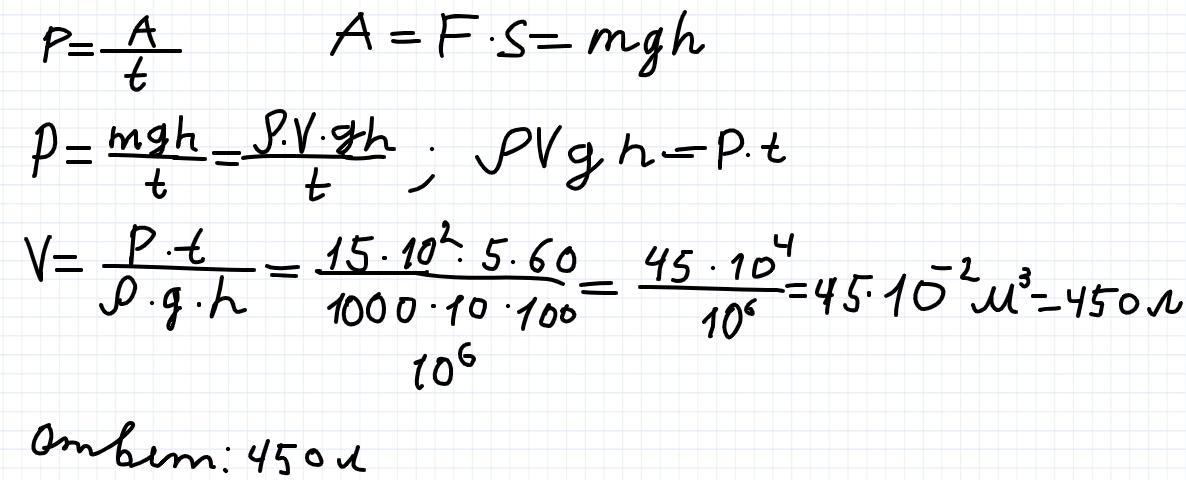 P = A/t    A = F · S = mgh
P = mgh/t = ρ·V·gh/t ; ρVgh = P·t
V = P·t/ρ·g·h = 15·10²·5·60/1000·10·100 = 45·10⁴/10⁶ = 45·10⁻² м³ = 450 л
10⁶
Ответ: 450 л